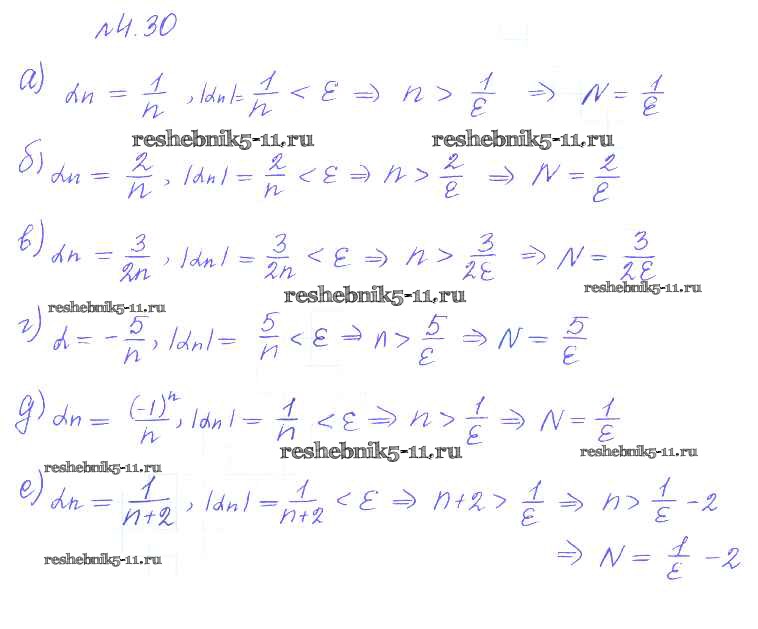 №4.30
а) αn = 1/n , |αn| = 1/n < ε ⇒ n > 1/ε ⇒ N = 1/ε
reshebnik5-11.ru reshebnik5-11.ru
б) αn = 2/n , |αn| = 2/n < ε ⇒ n > 2/ε ⇒ N = 2/ε
в) αn = 3/2n , |αn| = 3/2n < ε ⇒ n > 3/2ε ⇒ N = 3/2ε
reshebnik5-11.ru reshebnik5-11.ru reshebnik5-11.ru
г) α = -5/n , |αn| = 5/n < ε ⇒ n > 5/ε ⇒ N = 5/ε
д) αn = (-1)^n/n , |αn| = 1/n < ε ⇒ n > 1/ε ⇒ N = 1/ε
reshebnik5-11.ru reshebnik5-11.ru reshebnik5-11.ru
е) αn = 1/n+2 , |αn| = 1/n+2 < ε ⇒ n+2 > 1/ε ⇒ n > 1/ε - 2
⇒ N = 1/ε - 2
reshebnik5-11.ru